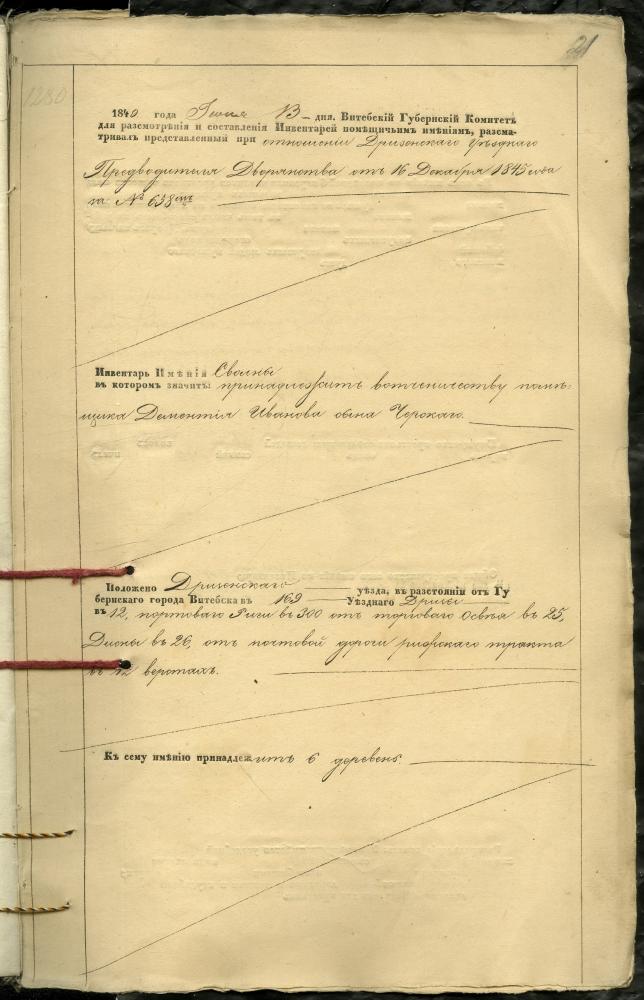 21
1280
1840 года Июня 13 – дня. Витебскій Губернскій Комитетъ
для разсмотрѣнія и составленія Инвентарей помѣщичьимъ имѣніямъ, разсма-
тривалъ представленный при отношеніи Дризенскаго уѣзднаго
Предводителя Дворянства отъ 16 Декабря 1845 года
за № 658
Инвентарь Имѣнія Свольны
въ которомъ значитъ: принадлежитъ вотчинничеству помѣ-
щика Дементія Иванова сына Черскаго.
Положено Дризенскаго уѣзда, въ разстояніи отъ Гу
бернскаго города Витебска въ 169 Уѣзднаго Дриссы
въ 12, портоваго Риги въ 300 отъ торговаго Освѣя въ 25,
Дисны въ 26, отъ почтовой дороги рижскаго тракта
въ 12 верстахъ.
Къ сему имѣнію принадлежитъ 6 деревень.